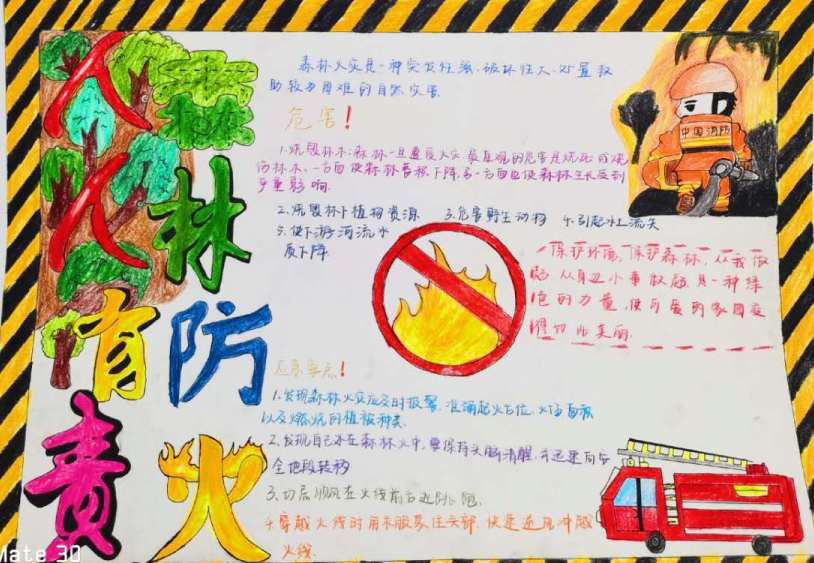 森林防火
人人有责
森林火灾是一种突发性强、破坏性大、处置救
助较为困难的自然灾害.
危害!
1.烧毁林木:森林一旦遭受火灾 最直观的危害是烧死或烧
伤林木、一方面使森林蓄积下降,另一方面也使森林生长受到
严重影响.
2.烧毁林下植物资源 3.危害野生动物 4.引起水土流失
5.使下游河流水
质下降.
中国消防
保护环境,保护森林,从我做
起,从身边小事做起,是一种绿
色的力量,使可爱的家园变
得
美丽.
!
1.发现森林火灾应及时报警,准确起火方位、火场面积
以及燃烧的植被种类.
2.发现自己处在森林火中,要保持头脑清醒,并迅速向安
全地段转移
3.切忌顺风在火线前方逃
4.穿越火线时用衣服蒙住头部,快速逆风冲越
火线.
Mate 30